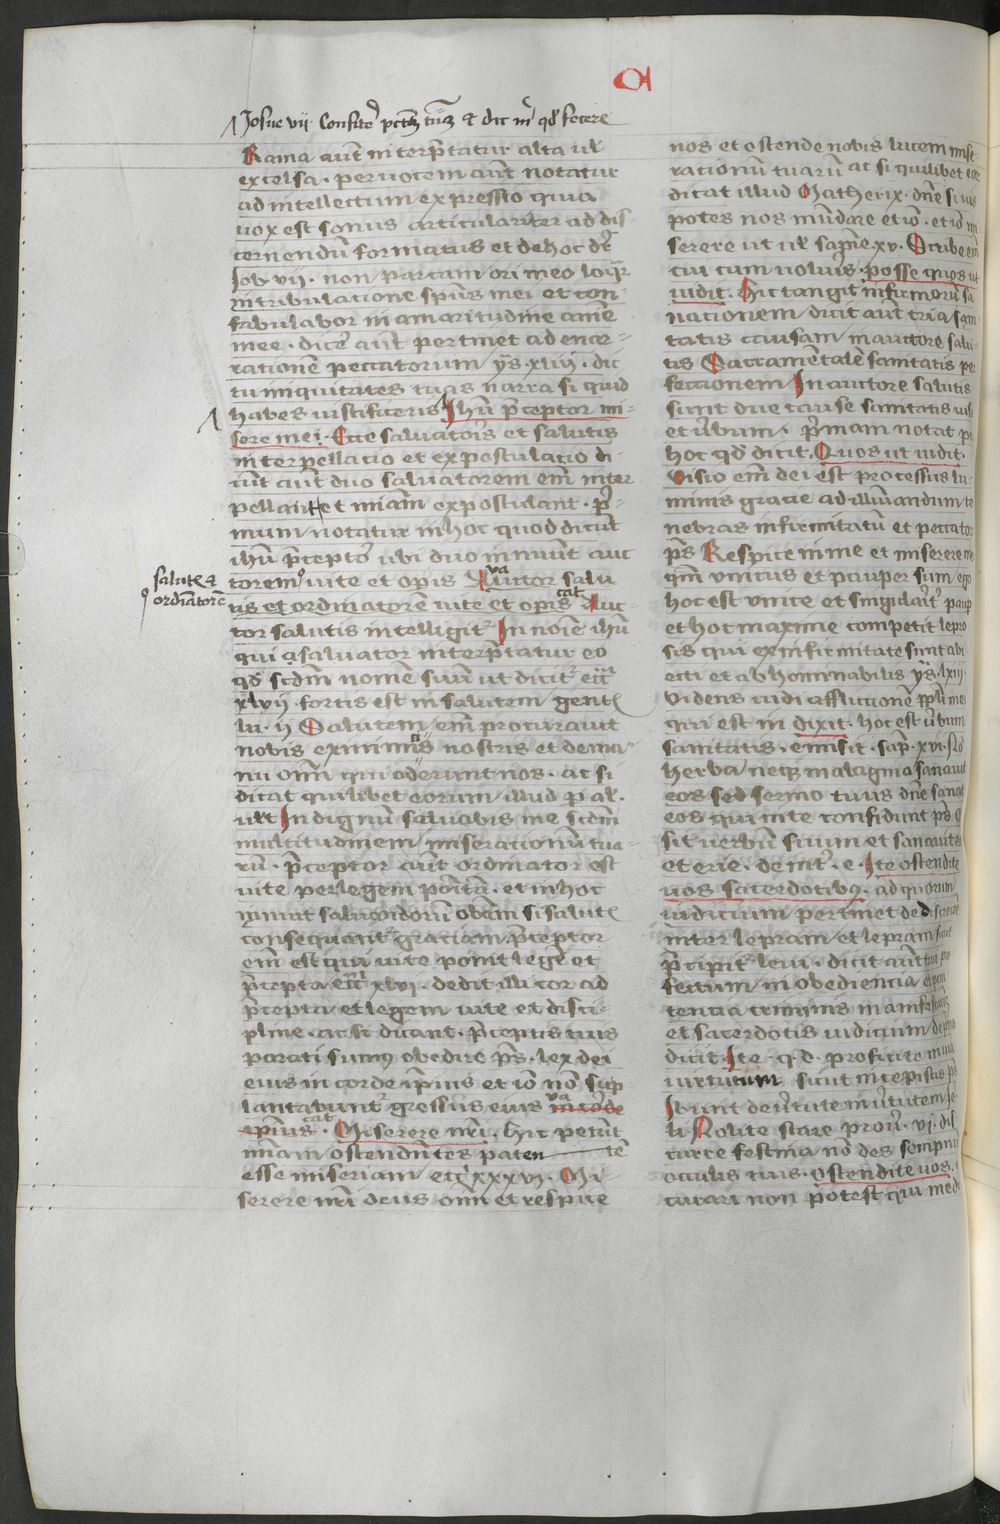 Josue vii. Confiteˀ pctm̄ tuū & dic mͥ qd̕ fecere
Rama aut̄ interp̄tatur alta ul̕
excelsa. per uocem aut̄ notatur
ad intellectum expressio quia
uox est sonus articulariter ad dis
cernendū formatus et de hoc dr̄
Job vii. non parcam ori meo loqͬ
in tribulacione sp̄us mei et con
fabulabor in amaritudine anīe
mee. dicē aut̄ pertinet ad enar-
rationē peccatorum ys. xliii. dic
tu iniquitates tuas narra si quid
habes ut iustificeris Jhū p̄ceptor mi
sere mei. Ecce saluatoris et salutis
interpellacio et expostulacio di
cūt aut̄ duo saluatorem em̄ inter
pellant et mīam expostulant. pͥ-
mum notatur in hoc quod dicūt
ihū p̄ceptoˀ ubi duo innuūt auc
toremꝰ uite et opis va Auctor salu
salutē &
ordiatorē
tis et ordinatorē uite et opis cat Auc
tor salutis intelligitˀ In noīe ihū
qui saluator interp̄tatur eo
qd̕ scdm̄ nomē suū ut dicitˀ eccͥ
xlvii. fortis est in salutem gentē
lu. ii Salutem em̄ procurauit
nobis ex inimīs nostris et de ma
nu om̄ qui oderunt nos. ac si
dicat quilibet eorum illud p al.
ult̄ Indignū saluabis me scdm̄
multitudinem miserationū tua
rū. p̄ceptor aut̄ ordinator est
uite per legem ponit̄. et in hoc
innuit saluandorū obam si salutē
consequant̄ graciam p̄ceptor
em̄ est qui uite ponit legē et
p̄cepta eccͥ xlvi. dedit illi cor ad
p̄cepta et legem uite et disci
pline. ac si dicant. p̄ceptis tuis
parati sumꝰ obedire p̄s. lex dei
eius in corde ip̄ius et iō nō sup
lantabuntˀ gressus eius va in corde
ip̄ius cat. Miserere nr̄i. hic petūt
mīam ostendentes paten tē
esse miseriam eccͥ xxxvi. Mi-
serere nr̄i deus om̄ et respice
nos et ostende nobis lucem mise
rationū tuarū ac si quilibet eoꝝ
dicat illud Mathei ix. dn̄e si uis
potes nos mūdare et iō. et iō mi
serere ut ul̕ sapīe xv. Subē em̄
tui cum uolu'is posse quos ut
uidit. Hic tangit infirmorū sa
nationem dicit aut̄ tria sani
tatis causam in auctore salu
tis Sacramētale sanitatis per
fectionem In auctore salutis
sunt due cause sanitatis uisio
et ūbum. p̄mam notat p
hoc qd̕ dicit. Quos ut uidit.
Visio em̄ dei est processus lu-
minis gracie ad illuīandum te
nebras infirmitatū et peccatoꝝ
p̄s Respice in me et miserere mei
qm̄ vnicus et pauper sum ego
hoc est vnice et singulaīt̕ paup
et hoc maxime competit lepro
sis qui ex infirmitate sunt abi
ecti et abhominabilis ys. lxiii.
Videns uidi afflictionē pp̄li mei
qui est in dixit. hoc est ūbum
sanitatis. emisit. sap̄. xvi. Nō
herba neqꝫ malagma sanauit
eos sed sermo tuus dn̄e sanat
eos qui in te confidunt p̄s.
sit uerbū suum et sanauit eos
et erie. de int̕. e. Ite ostendite
uos sacerdotibꝰ. ad quorum
iudicium pertinet de discreciōe
inter lepram et lepram sicut
p̄cipitˀ leui. dicit aut̄ tria pro
fectum in obediencia
tencia criminis
et sacerdotis iudicium
dicit Ite. q. d. proficite in uia
uirtutum sicut incepistis p̄s
Ibunt de v̄tute in v̄tutem
li. Nolite stare prouˀ. vi. dis
curre festina nō des sompnū
oculis tuis. Ostendite uos.
curari non potest qui